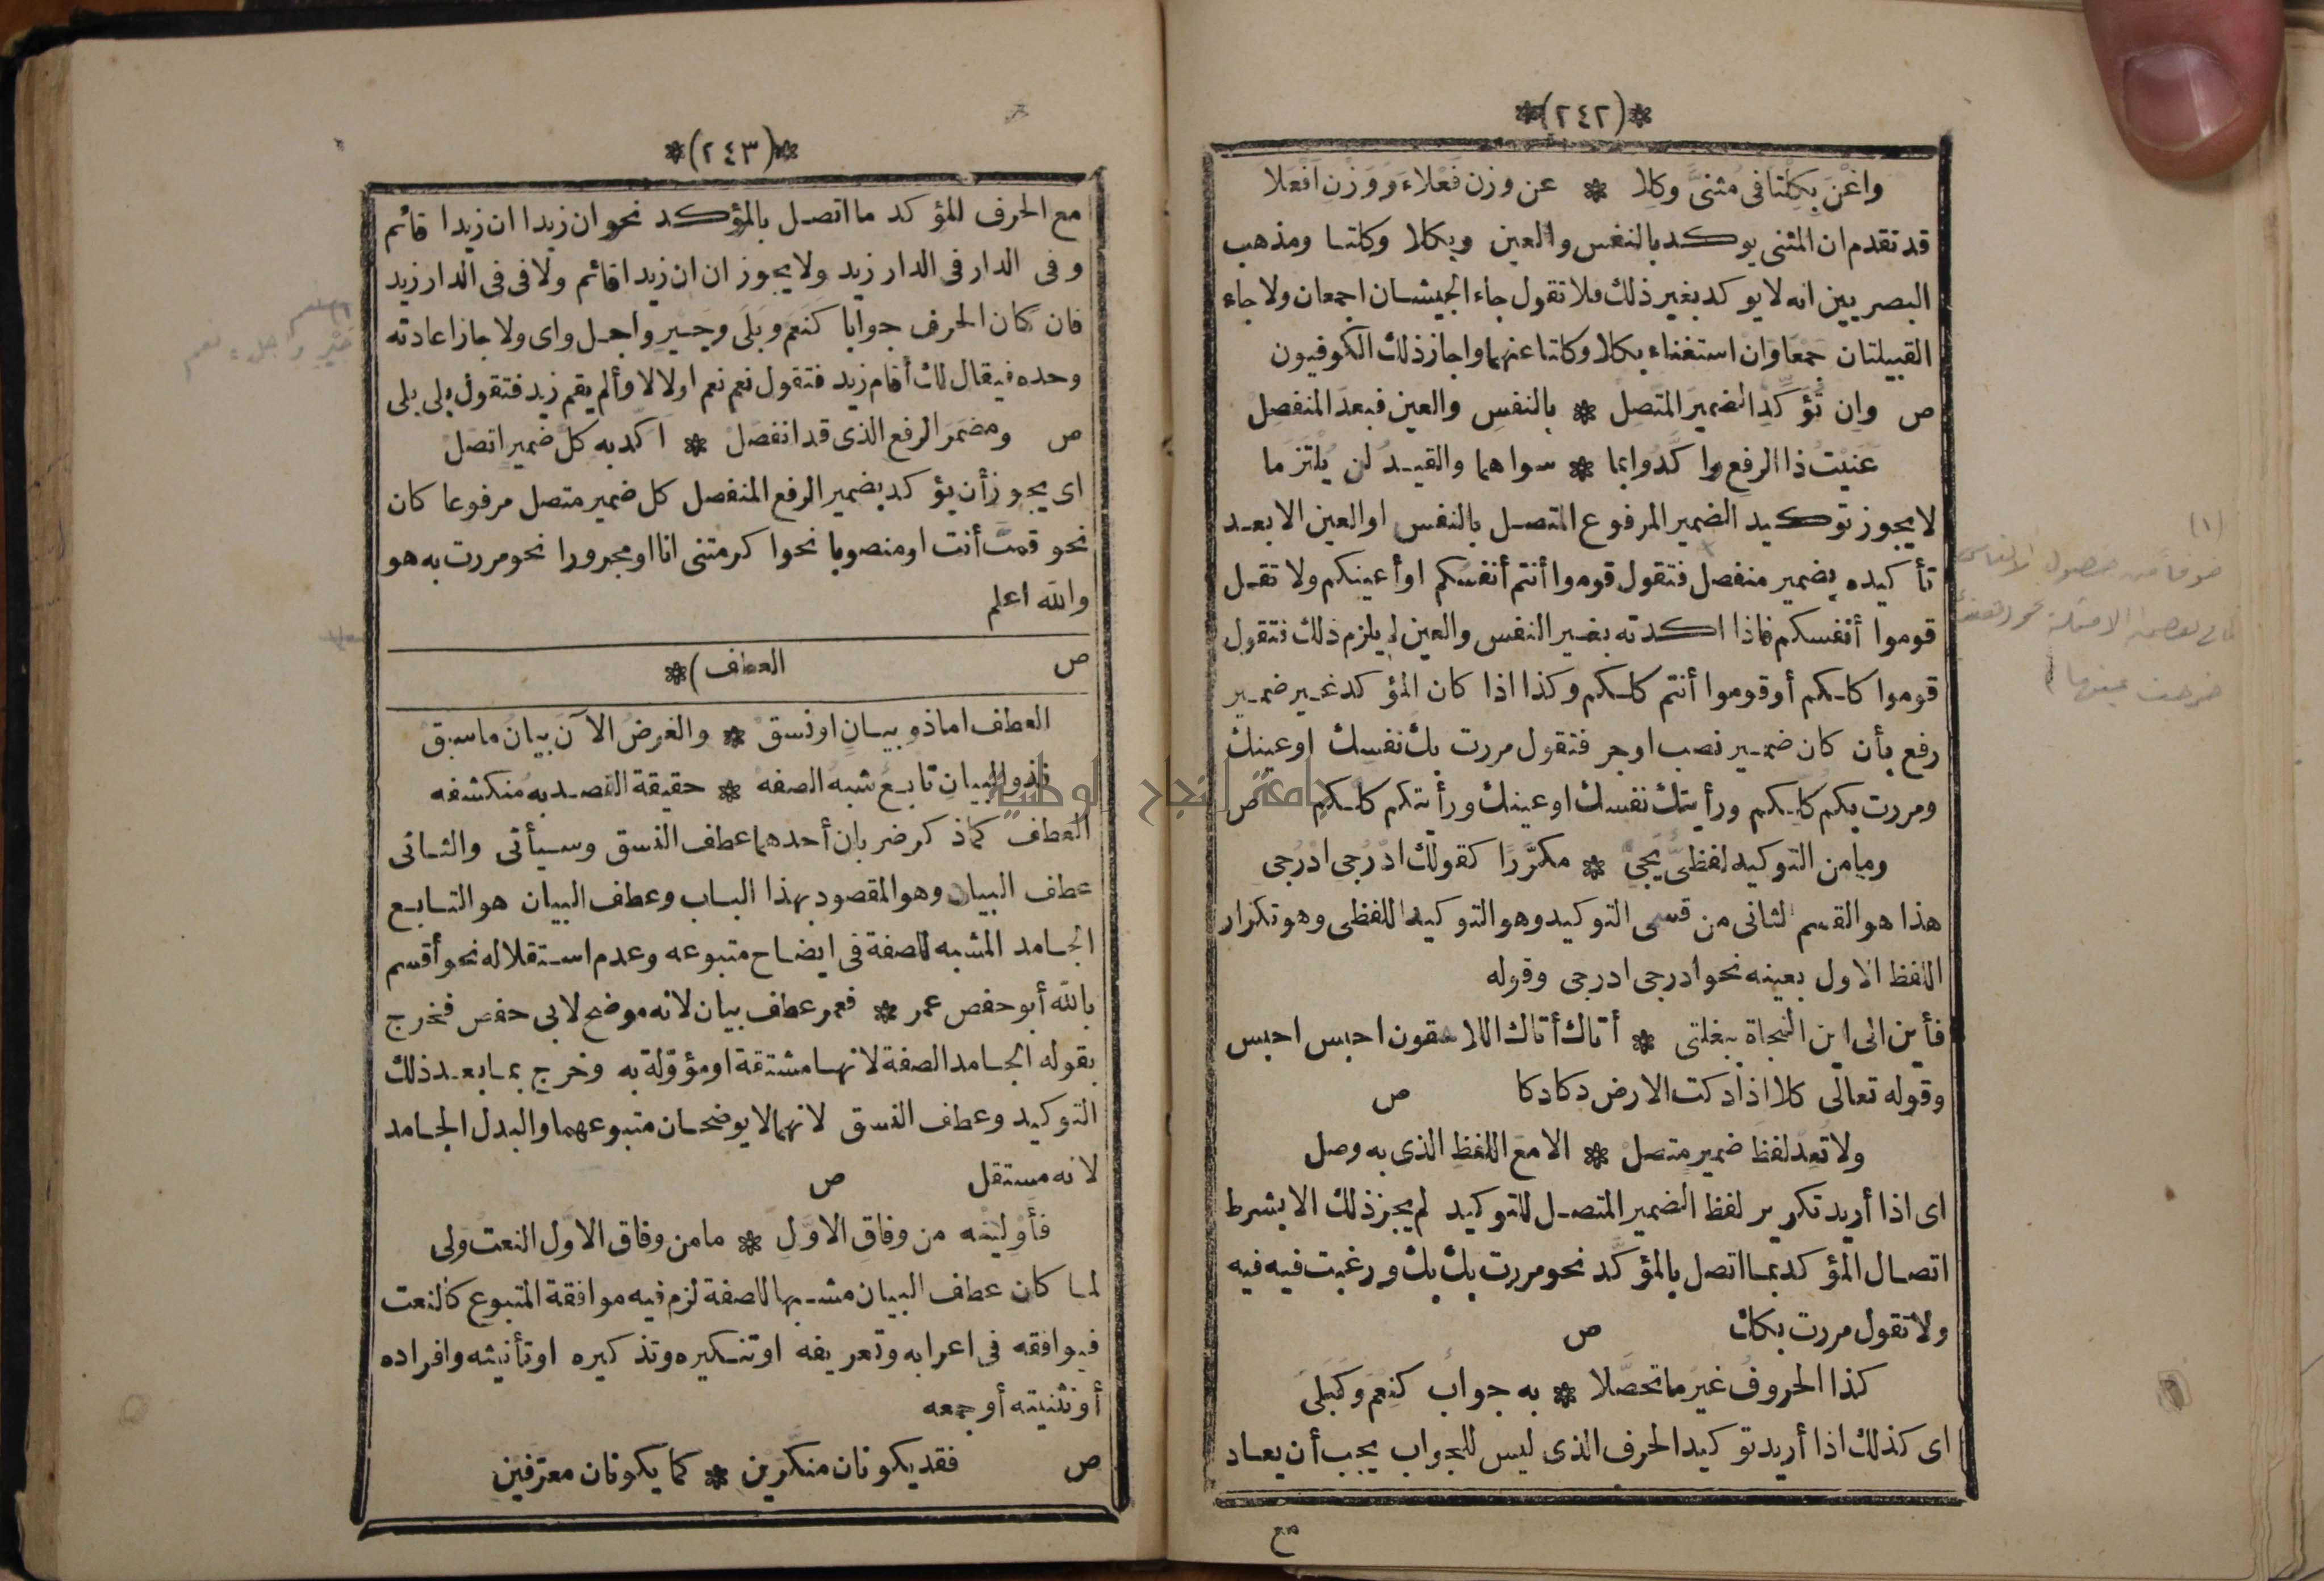 ✽(٢٤٢)✽
واغْنَ بِكِلْتا فى مُثنىً وكِلا ✽ عن وزن فَعْلاءَ وَوَزْنِ أفْعَلا
قد تقدم ان المثنى يوكد بالنفس والعين وبكلا وكلتا ومذهب
البصريين انه لا يوكد بغير ذلك فلا تقول جاء الجيشان اجمعان ولا جاء
القبيلتان جمعاوان استغناء بكلا وكلتا عنهما واجاز ذلك الكوفيون
ص وان تُؤَكِّدِ الضميرَ المتصِلْ ✽ بالنفسِ والعين فبعدَ المنفصِلْ
عَنَيْتُ ذا الرفعِ وا كَّدُوا بما ✽ سواهما والقيدُ لن يُلتزَما
لا يجوز توكيد الضمير المرفوع المتصل بالنفس او العين الا بعد
تأكيده بضمير منفصل فتقول قوموا أنتم أنفسكم او أعينكم ولا تقل
قوموا أنفسكم فاذا اكدته بغير النفس والعين لم يلزم ذلك فتقول
قوموا كلكم أو قوموا أنتم كلكم وكذا اذا كان المؤكد غير ضمير
رفع بأن كان ضمير نصب اوجر فتقول مررت بك نفسك اوعينك
ومررت بكم كلكم ورأيتك نفسك اوعينك ورأيتكم كلكم ص
وما من التوكيد لفظىٌّ يَجِىْ ✽ مكرَّرًا كقولك ادْرُجِى ادْرُجِى
هذا هو القسم الثانى من قسمى التوكيد وهو التوكيد اللفظى وهو تكرار
اللفظ الاول بعينه نحو ادرجى ادرجى وقوله
فأين الى اين النجاة ببغلتى ✽ أتاك أتاك اللاحقون احبس احبس
وقوله تعالى كلا اذا دكت الارض دكا دكا ص
ولا تُعِدْ لفظَ ضميرٍ متصلْ ✽ الا معَ اللفظِ الذى به وصل
اى اذا أريد تكرير لفظ الضمير المتصل للتوكيد لم يجز ذلك الا بشرط
اتصال المؤكد بما اتصل بالمؤكَّد نحو مررت بك بك ورغبت فيه فيه
ولا تقول مررت بكك ص
كذا الحروفُ غيرَ ما تحصَّلا ✽ به جوابٌ كنعَمْ وكَبَلَى
اى كذلك اذا أريد توكيد الحرف الذى ليس للجواب يجب أن يعاد
مع
(١)
✽(٢٤٣)✽
مع الحرف المؤكد ما اتصل بالمؤكد نحو ان زيدا ان زيدا قائم
وفى الدار فى الدار زيد ولا يجوز ان ان زيدا قائم ولا فى فى الدار زيد
فان كان الحرف جوابا كَنَعَم وبَلَى وجَيْرِ واجل واى ولا جاز اعادته
وحده فيقال لك أقام زيد فتقول نعم نعم او لا لا وألم يقم زيد فتقول بلى بلى
ص ومضمَرَ الرفعِ الذى قد انفصَلْ ✽ اكِّد به كلَّ ضميرٍ اتصلْ
اى يجوز أن يؤكد بضمير الرفع المنفصل كل ضمير متصل مرفوعا كان
نحو قمتَ أنت او منصوبا نحو اكرمتنى انا او مجرورا نحو مررت به هو
والله اعلم
ص العطف)✽
العطف اما ذو بيانٍ او نسقْ ✽ والغرضُ الآن بيانُ ما سبقْ
فذو البيانِ تابعٌ شبهُ الصفه ✽ حقيقة القصد به منكشفه
العطف كما ذكر ضربان أحدهما عطف النسق وسيأتى والثانى
عطف البيان وهو المقصود بهذا الباب وعطف البيان هو التابع
الجامد المشبه للصفة فى ايضاح متبوعه وعدم استقلاله نحو أقسم
بالله أبو حفص عمر ✽ فعمر عطف بيان لانه موضح لابى حفص فخرج
بقوله الجامد الصفة لانها مشتقة او مؤوّلة به وخرج بما بعد ذلك
التوكيد وعطف النسق لانهما لا يوضحان متبوعهما والبدل الجامد
لانه مستقل ص
فأَوْلِيَنْه من وِفاقِ الاوّلِ ✽ ما من وفاق الاوّلِ النعتُ وَلى
لما كان عطف البيان مشبها للصفة لزم فيه موافقة المتبوع كالنعت
فيوافقه فى اعرابه وتعريفه اوتنكيره وتذكيره اوتأنيثه وافراده
أوتثنيته أوجمعه
ص فقد يكونان منكَّرَين ✽ كما يكونان معرَّفين
جامعة النجاح الوطنية